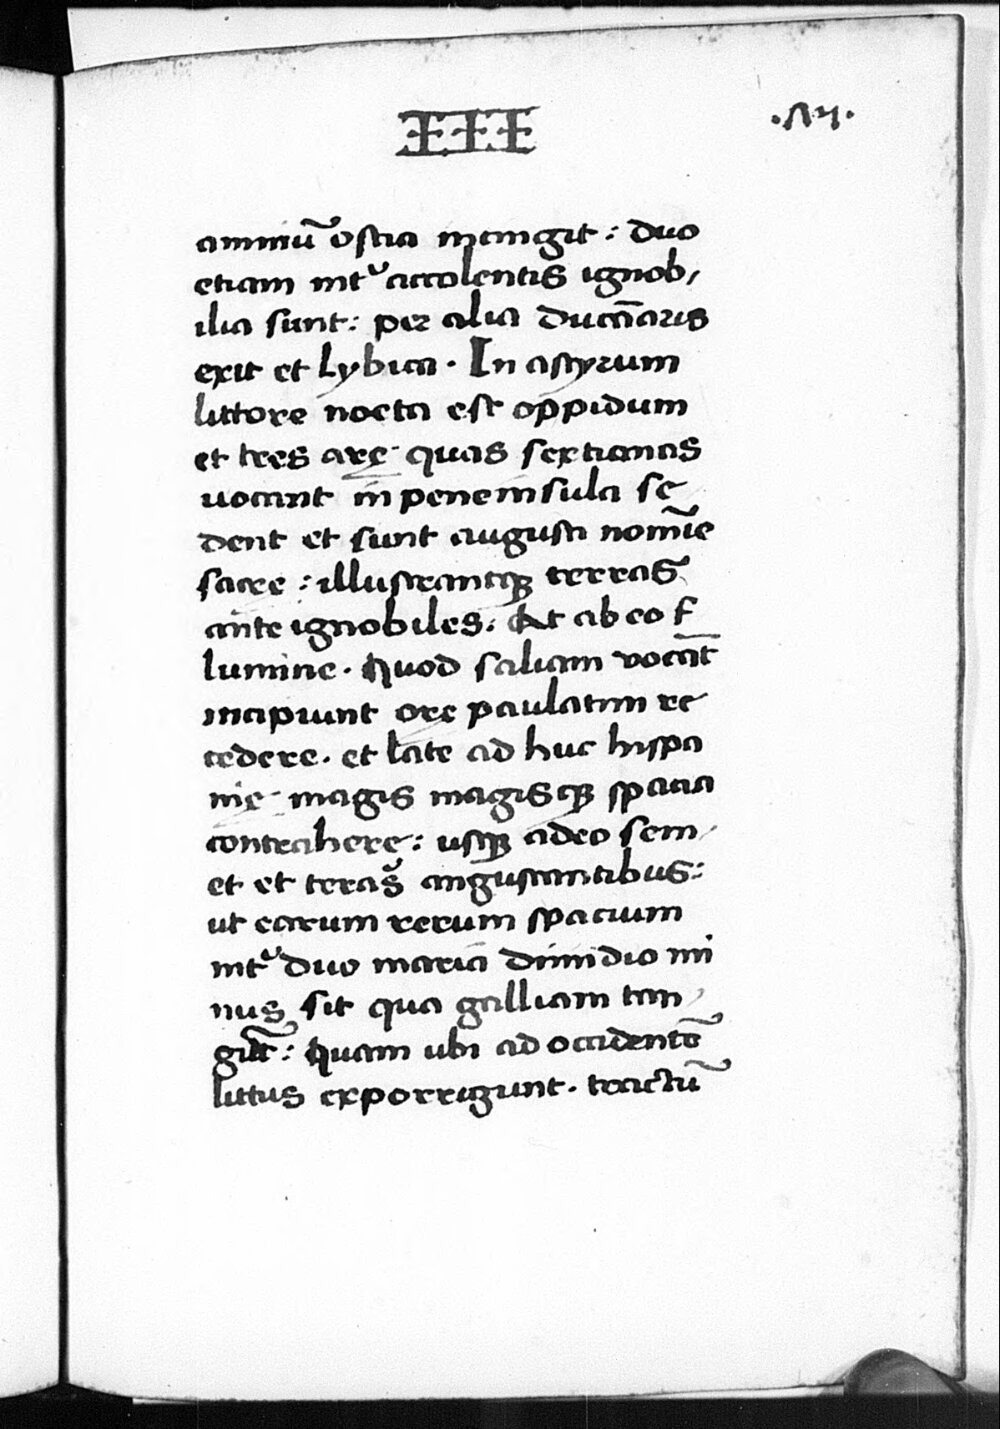 III
amniū ostia incingit : duo
etiam int᷑ accolentis ignob,
ilia sunt : per alia ducāaris
exit et lybica . In astyrum
littore noeta est oppidum
et tres arę quas sextianas
uocant in peneinsula se
dent et sunt augusti nomīe
sacre : illustrantqꝫ terras
ante ignobiles . At ab eo f
lumine . Quod saliam vocāt
incipiunt ore paulatim re
cedere . et late ad huc hispa
nię magis magisqꝫ spacia
contrahere : usqꝫ adeo sem
et et teras̄ angustantibus :
ut earum rerum spacium
int᷑ duo maria dimidio mi
nus sit qua galliam tan
gūt : Quam ubi ad occidentē
littus exporrigunt . tractū